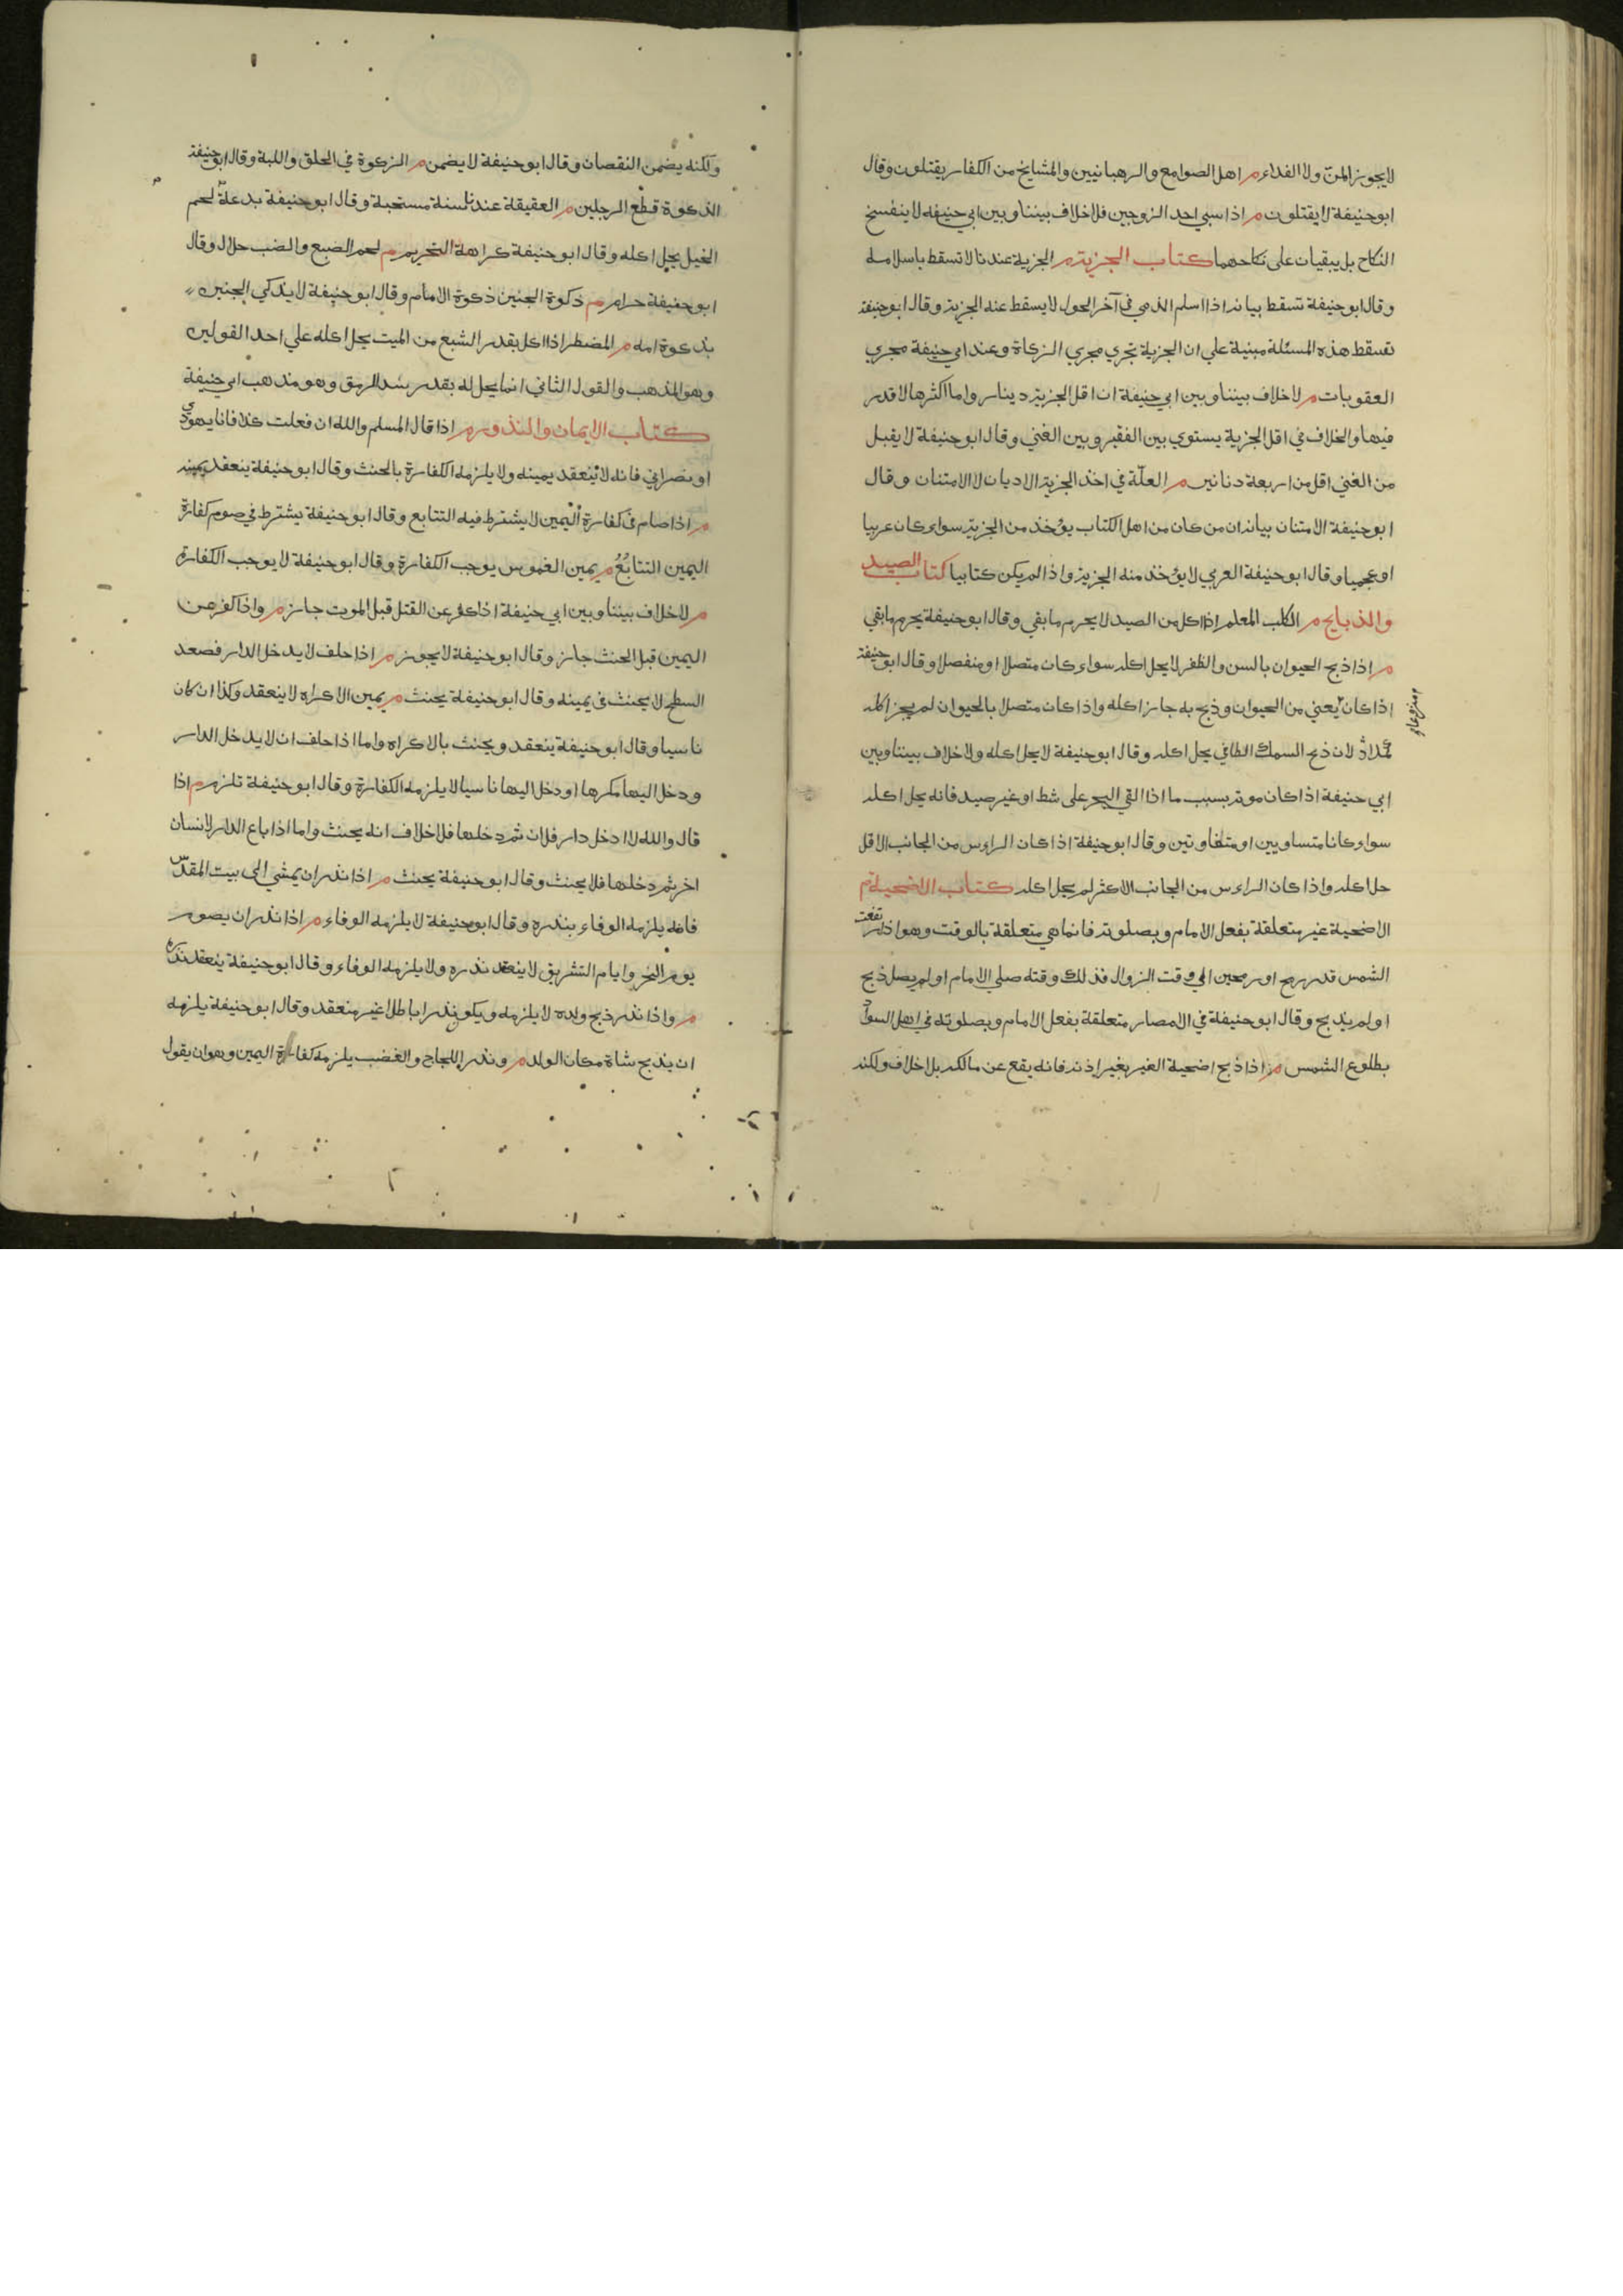 لا يجوز المن ولا الفداء م اهل الصوامع والرهبانيين والمشايخ من الكفار يقتلون وقال
ابو حنيفة لا يقتلون م اذا سبي احد الزوجين فلا خلاف بيننا وبين ابي حنيفه لا ينفسخ
النكاح بل يبقيان على نكاحهما كتاب الجزية م الجزية عندنا لا تسقط باسلامه
وقال ابو حنيفة تسقط بيانه اذا اسلم الذمي في آخر الحول لا يسقط عنه الجزية وقال ابو حنيفة
تسقط هذه المسئلة مبنية علي ان الجزية تجري مجري الزكاة وعند ابي حنيفة مجري
العقوبات م لا خلاف بيننا وبين ابي حنيفة ان اقل الجزية دينار واما اكثرها لا قدر
فيها والخلاف في اقل الجزية يستوي بين الفقير وبين الغني وقال ابو حنيفة لا يقبل
من الغني اقل من اربعة دنانير م العلّة في اخذ الجزية الاديان لا الامتنان وقال
ابو حنيفة الامتنان بيانه ان من كان من اهل الكتاب يؤخذ من الجزية سواء كان عربيا
او عجميا وقال ابو حنيفة العربي لا يؤخذ منه الجزية واذا لم يكن كتابيا كتاب الصيد
والذبايح م الكلب المعلم اذا اكل من الصيد لا يحرم ما بقي وقال ابو حنيفة يحرم ما بقي
م اذا ذبح الحيوان بالسن والظفر لا يحل اكله سواء كان متصلا او منفصلا وقال ابو حنيفة
اذا كان يعني من الحيوان وذبح به جاز اكله واذا كان متصلا بالحيوان لم يجز اكله
لان ذبح السمك الطافي يحل اكله وقال ابو حنيفة لا يحل اكله ولا خلاف بيننا وبين
ابي حنيفة اذا كان موته بسبب ما اذا القي البحر على شط او غير صيد فانه يحل اكله
سواء كانا متساويين او متفاوتين وقال ابو حنيفة اذا كان الراس من الجانب الاقل
حل اكله واذا كان الراس من الجانب الاكثر لم يحل اكله كتاب الاضحية م
الاضحية غير متعلقة بفعل الامام وبصلوته فانما هي متعلقة بالوقت وهو اذا ارتفعت
الشمس قدر رمح او رمحين الي وقت الزوال فذلك وقته صلي الامام او لم يصل ذبح
او لم يذبح وقال ابو حنيفة في الامصار متعلقة بفعل الامام وبصلوته في اهل السواد
بطلوع الشمس م اذا ذبح اضحية الغير بغير اذنه فانه يقع عن مالكه بلا خلاف ولكنه
ولكنه يضمن النقصان وقال ابو حنيفة لا يضمن م الزكوة في الحلق واللبة وقال ابو حنيفة
الذكوة قطع الرجلين م العقيقة عندنا سنة مستحبة وقال ابو حنيفة بدعة م لحم
الخيل يحل اكله وقال ابو حنيفة كراهة التحريم م لحم الضبع والضب حلال وقال
ابو حنيفة حرام م ذكوة الجنين ذكوة الامام وقال ابو حنيفة لا يذكي الجنين
بذكوة امه م المضطر اذا اكل بقدر الشبع من الميت يحل اكله علي احد القولين
وهو المذهب والقول الثاني انما يحل له بقدر سد الرمق وهو مذهب ابي حنيفة
كتاب الايمان والنذور م اذا قال المسلم والله ان فعلت كذا فانا يهودي
او نصراني فانه لا ينعقد يمينه ولا يلزمه الكفارة بالحنث وقال ابو حنيفة ينعقد يمينه
م اذا صام في كفارة اليمين لا يشترط فيه التتابع وقال ابو حنيفة يشترط في صوم كفارة
اليمين التتابُعُ م يمين الغموس يوجب الكفارة وقال ابو حنيفة لا يوجب الكفارة
م لا خلاف بيننا وبين ابي حنيفة اذا كفر عن القتل قبل الموت جاز م واذا كفر عن
اليمين قبل الحنث جاز وقال ابو حنيفة لا يجوز م اذا حلف لا يدخل الدار فصعد
السطح لا يحنث في يمينه وقال ابو حنيفة يحنث م يمين الاكراه لا ينعقد وكذا ان كان
ناسيا وقال ابو حنيفة ينعقد ويحنث بالاكراه واما اذا حلف ان لا يدخل الدار
ودخل اليها مكرها او دخل اليها ناسيا لا يلزمه الكفارة وقال ابو حنيفة تلزم م اذا
قال والله لا ادخل دار فلان ثم دخلها فلا خلاف انه يحنث واما اذا باع الدار لانسان
اخر ثم دخلها فلا يحنث وقال ابو حنيفة يحنث م اذا نذر ان يمشي الى بيت المقدس
فانه يلزمه الوفاء بنذره وقال ابو حنيفة لا يلزمه الوفاء م اذا نذر ان يصوم
يوم النحر وايام التشريق لا ينعقد نذره ولا يلزمه الوفاء وقال ابو حنيفة ينعقد نذره
م واذا نذر ذبح ولده لا يلزمه ويكون نذرا باطلا غير منعقد وقال ابو حنيفة يلزمه
ان يذبح شاة مكان الولد م ونذر اللجاج والغضب يلزمه كفارة اليمين وهو ان يقول